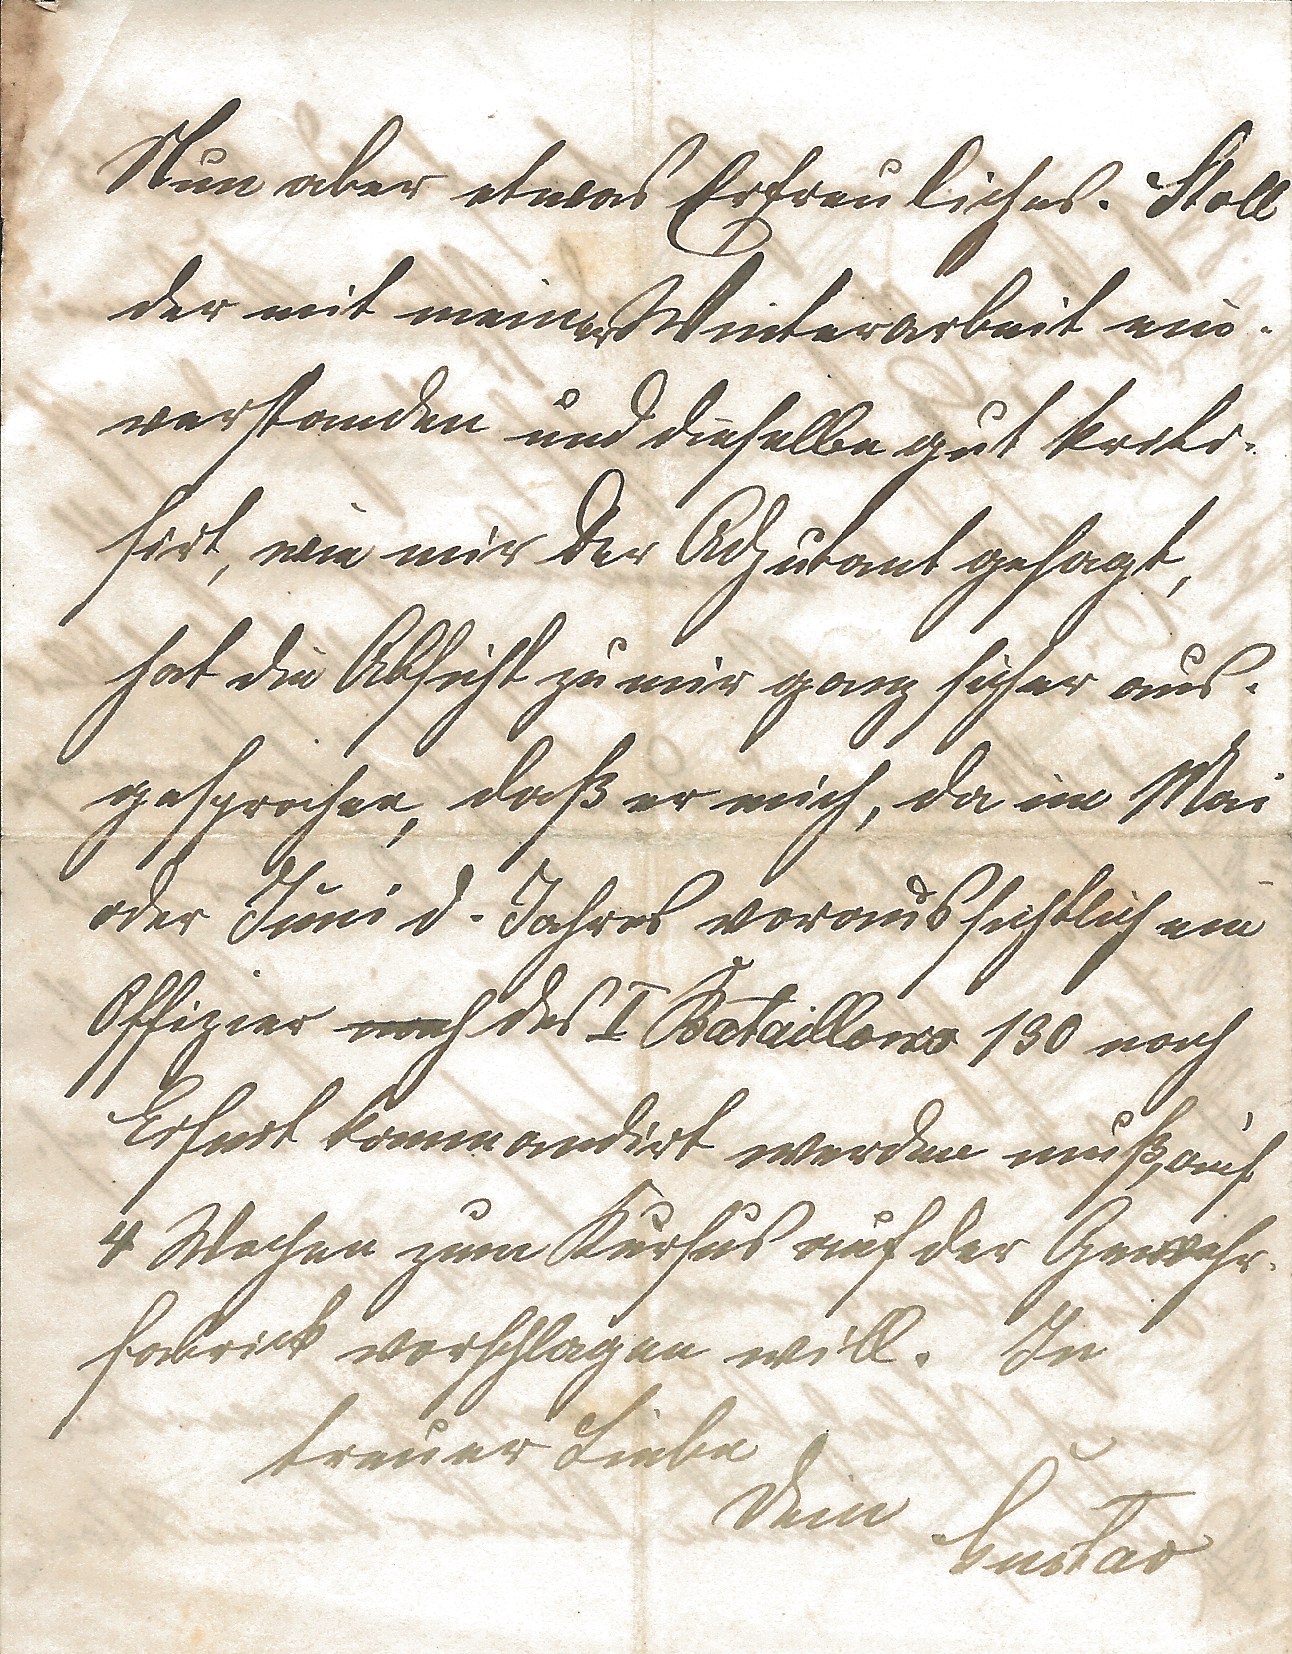 Nun aber etwas Erfreuliches. Stoll
der mit meiner Winterarbeit ein-
verstanden und dieselbe gut kriti-
sirt, wie mir der Adjutant gesagt,
hat die Absicht zu mir ganz sicher aus-
gesprochen, daß er mich, da im Mai
oder Juni d. Jahres voraussichtlich ein
Offizier nach des I Bataillons 130 nach
Erfurt kommandirt werden muß, auf
4 Wochen zum Kursus auf der Gewehr-
fabrick vorschlagen will. In
treuer Liebe
Dein
Gustav